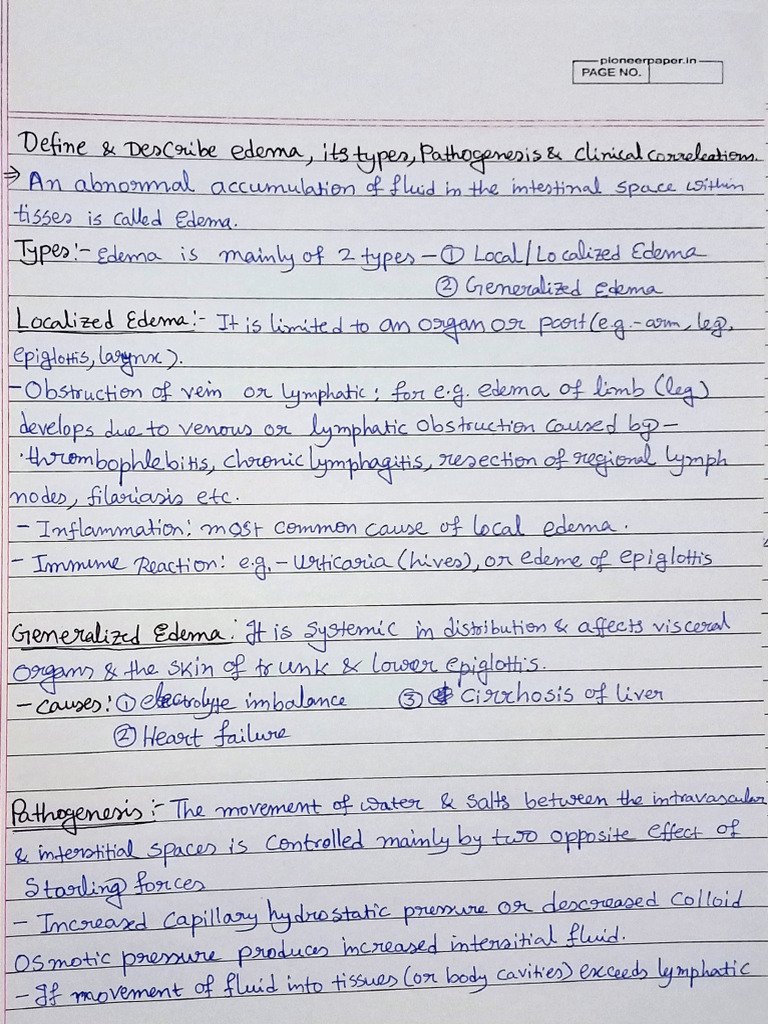 pioneerpaper.in
PAGE NO.
Define & Describe edema, its types, Pathogenesis & clinical correlations.
⇒ An abnormal accumulation of fluid in the intestinal space within
tisses is called Edema.
Types:- Edema is mainly of 2 types - ① Local/Localized Edema
② Generalized Edema
Localized Edema:- It is limited to an organ or part (e.g.- arm, leg,
epiglottis, larynx).
- Obstruction of vein or lymphatic: for e.g. edema of limb (leg)
develops due to venous or lymphatic obstruction caused by -
·thrombophlebitis, chronic lymphagitis, resection of regional lymph
nodes, filariasis etc.
- Inflammation: most common cause of local edema.
- Immune Reaction: e.g. - Urticaria (hives), or edeme of epiglottis
Generalized Edema: It is systemic in distribution & affects visceral
organs & the skin of trunk & lower epiglottis.
- Causes: ① electrolyte imbalance ③ cirrhosis of liver
② Heart failure
Pathogenesis:- The movement of water & salts between the intravascular
& interstitial spaces is controlled mainly by two opposite effect of
Starling forces
- Increased capillary hydrostatic pressure or descreased colloid
osmotic pressure produces increased intersitial fluid.
- If movement of fluid into tissues (or body cavities) exceeds lymphatic